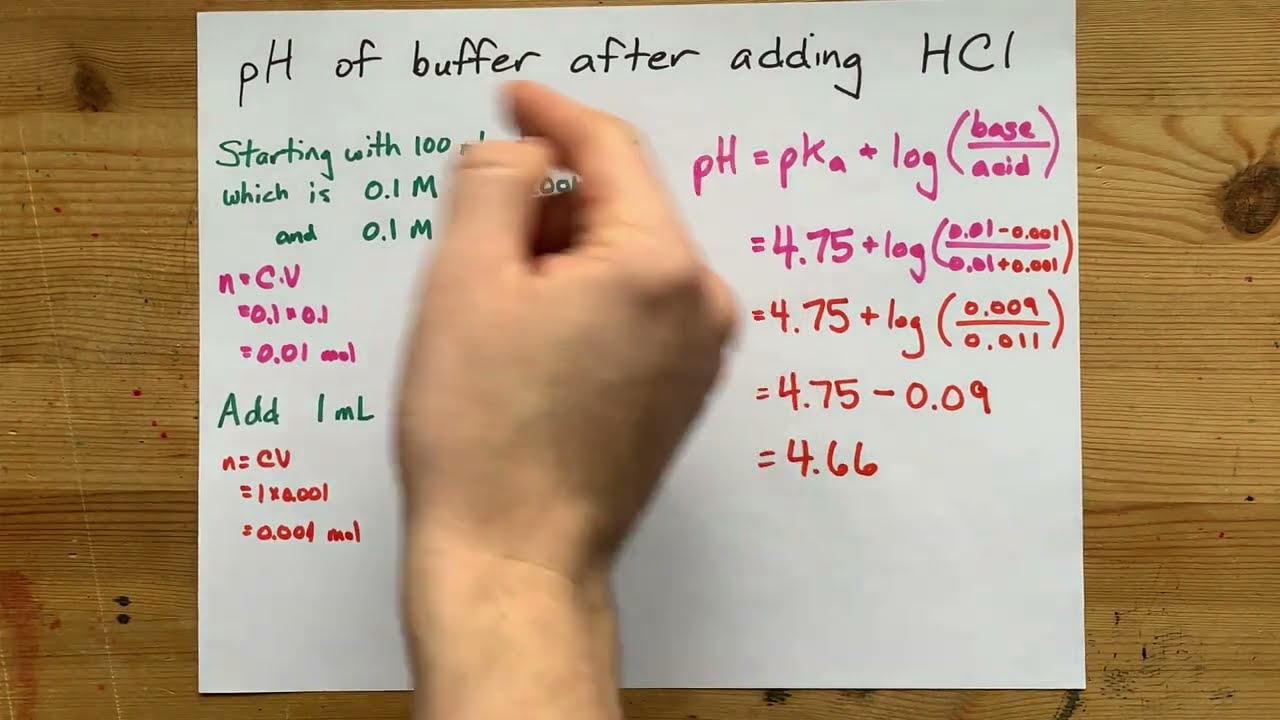 pH of buffer after adding HCl
Starting with 100
which is 0.1 M
and 0.1 M
n = C.V
= 0.1 × 0.1
= 0.01 mol
Add 1 mL
n = CV
= 1 x 0.001
= 0.001 mol
pH = pKa + log (base/acid)
= 4.75 + log (0.01 - 0.001/0.01 + 0.001)
= 4.75 + log (0.009/0.011)
= 4.75 - 0.09
= 4.66